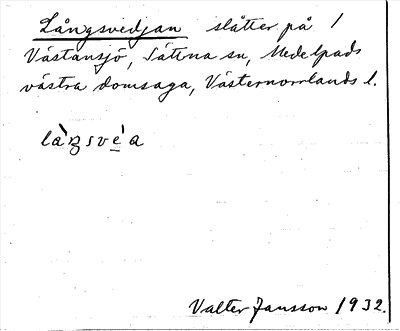 Långsvedjan slåtter på 1
Västansjö, Sättna sn, Medelpads
västra domsaga, Västernorrlands l.
là̀ŋsvè̠a
Valter Jansson 1932.